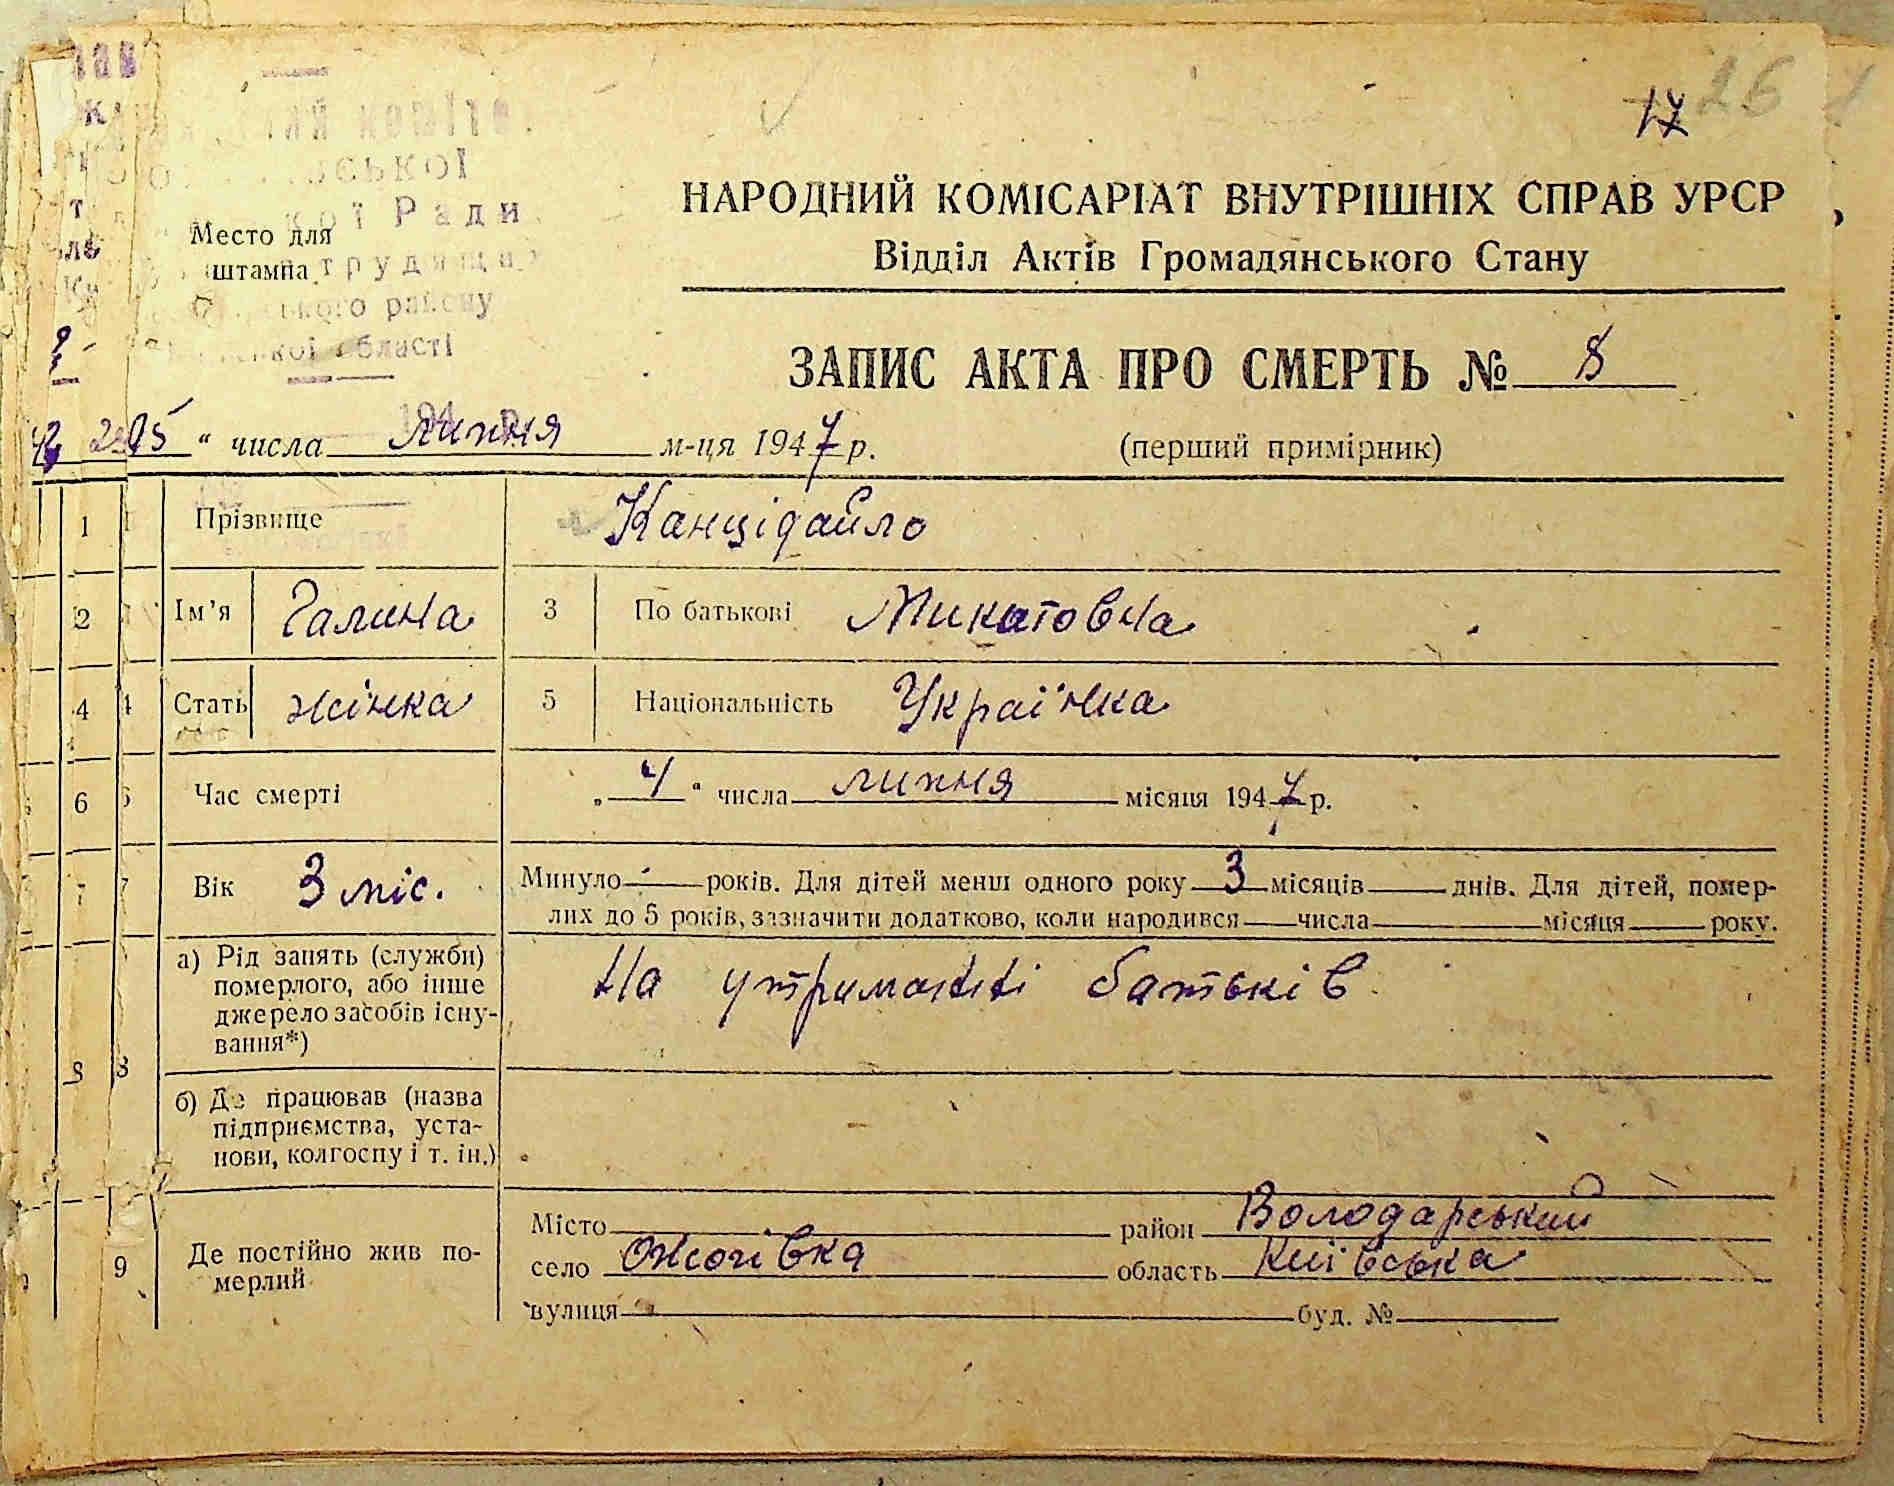 17 26
НАРОДНИЙ КОМІСАРІАТ ВНУТРІШНІХ СПРАВ УРСР
Відділ Актів Громадянського Стану
Место для
штампа
ої Ради
трудящих
ського району
кої області
ЗАПИС АКТА ПРО СМЕРТЬ № 8
5 " числа липня м-ця 1947 р. (перший примірник)
1 Прізвище Канцідайло
2 Ім'я Галина 3 По батькові Микитовна
4 Стать жінка 5 Національність Українка
6 Час смерті „ 4 " числа липня місяця 1947 р.
7 Вік 3 міс. Минуло - років. Для дітей менш одного року 3 місяців днів. Для дітей, помер-
лих до 5 років, зазначити додатково, коли народився числа місяця року.
8 а) Рід занять (служби)
померлого, або інше
джерело засобів існу-
вання*)
На утриманні батьків
б) Де працював (назва
підприємства, уста-
нови, колгоспу і т. ін.)
9 Де постійно жив по-
мерлий
Місто район Володарський
село Ожогівка область Київська
вулиця буд. №